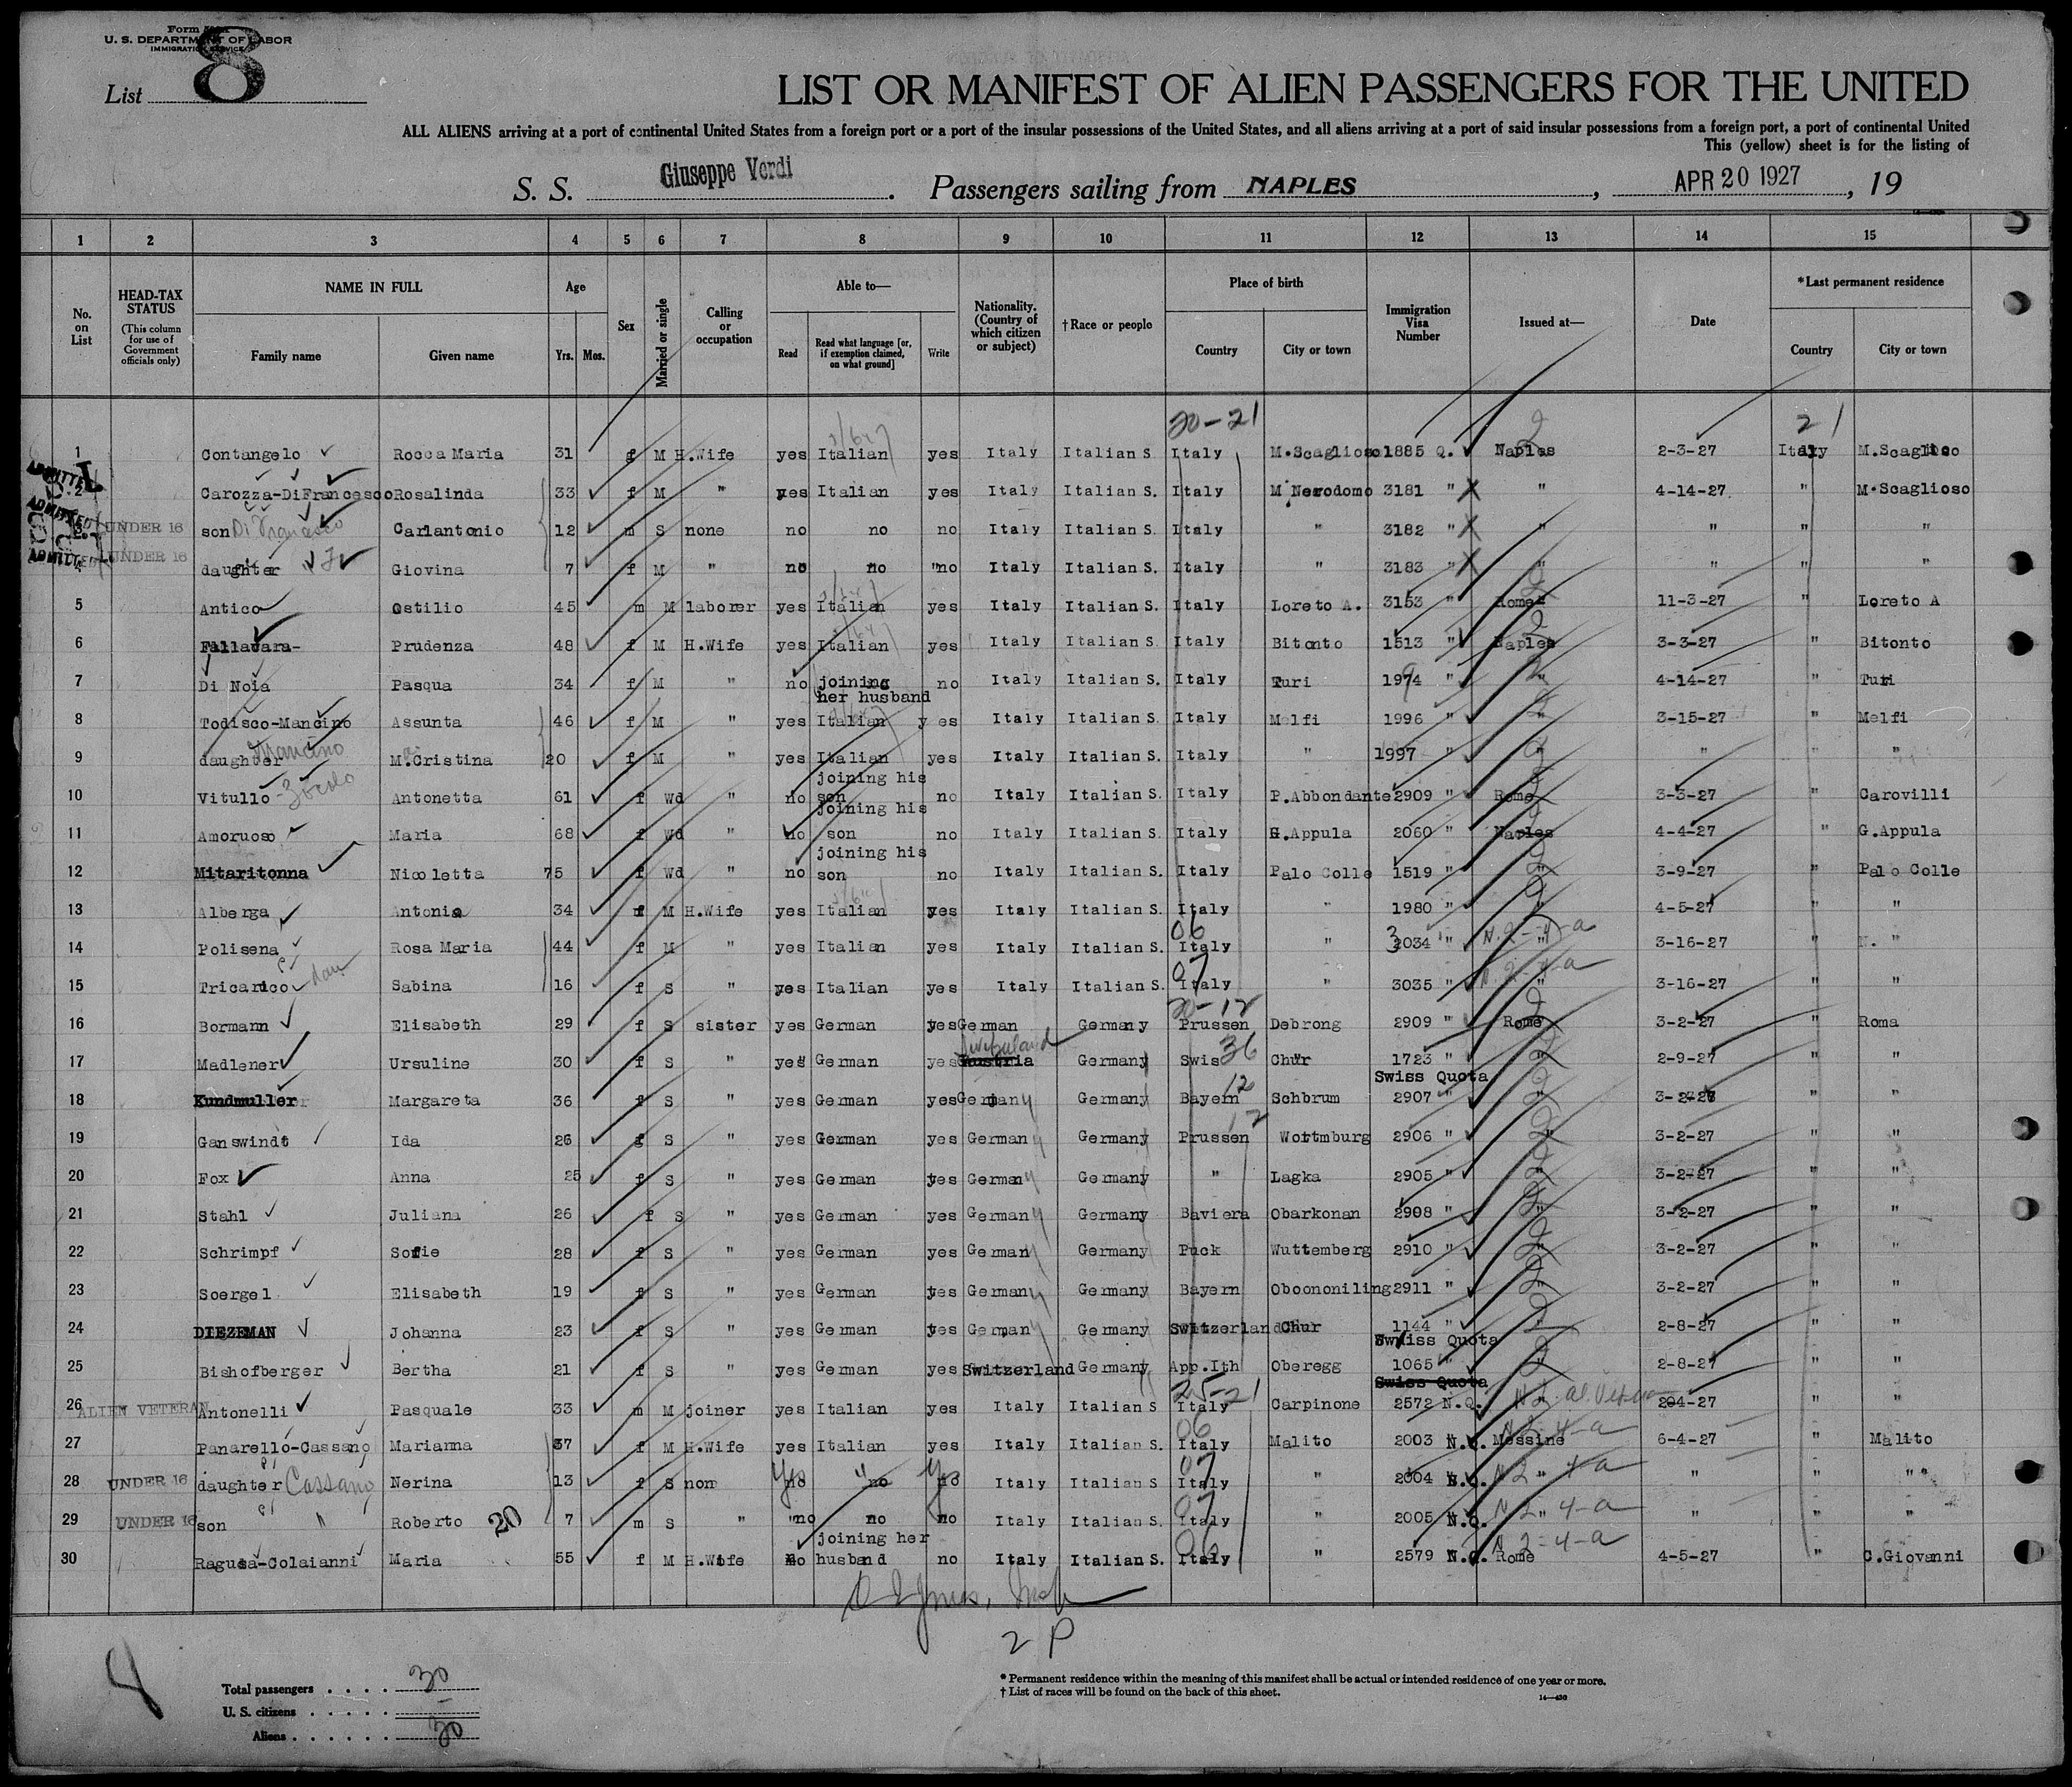 Form
U. S. DEPARTMENT OF LABOR
IMMIGRATION SERVICE
List 8
LIST OR MANIFEST OF ALIEN PASSENGERS FOR THE UNITED
ALL ALIENS arriving at a port of continental United States from a foreign port or a port of the insular possessions of the United States, and all aliens arriving at a port of said insular possessions from a foreign port, a port of continental United
This (yellow) sheet is for the listing of
S. S. Giuseppe Verdi. Passengers sailing from NAPLES, APR 20 1927, 19
1 2 3 4 5 6 7 8 9 10 11 12 13 14 15
No. on List
HEAD-TAX STATUS (This column for use of Government officials only)
NAME IN FULL Family name Given name
Age Yrs. Mos.
Sex
Married or single
Calling or occupation
Able to— Read Read what language [or, if exemption claimed, on what ground] Write
Nationality. (Country of which citizen or subject)
†Race or people
Place of birth Country City or town
Immigration Visa Number
Issued at—
Date
*Last permanent residence Country City or town
20-21 21
1 Contangelo Rocca Maria 31 f M H.Wife yes Italian yes Italy Italian S Italy M.Scaglioso 1885 Q. Naples 2-3-27 Italy M.Scaglioso
ADMITTED 2 Carozza-DiFrancesco Rosalinda 33 f M " yes Italian yes Italy Italian S. Italy M Nerodomo 3181 " " 4-14-27 " M.Scaglioso
ADMITTED 3 UNDER 16 son Di Francesco Carlantonio 12 m S none no no no Italy Italian S. Italy " 3182 " " " " "
ADMITTED 4 UNDER 16 daughter " Giovina 7 f M " no no "no Italy Italian S. Italy " 3183 " " " " "
5 Antico Ostilio 45 m M laborer yes Italian yes Italy Italian S. Italy Loreto A. 3153 " Rome 11-3-27 " Loreto A
6 Fallavara- Prudenza 48 f M H.Wife yes Italian yes Italy Italian S. Italy Bitonto 1513 " Naples 3-3-27 " Bitonto
7 Di Noia Pasqua 34 f M " no joining her husband no Italy Italian S. Italy Turi 1974 " " 4-14-27 " Turi
8 Todisco-Mancino Assunta 46 f M " yes Italian y es Italy Italian S. Italy Melfi 1996 " " 3-15-27 " Melfi
9 daughter Mancino M.Cristina 20 f M " yes Italian yes Italy Italian S. Italy " 1997 " " " " "
10 Vitullo Antonetta 61 f Wd " no joining his son no Italy Italian S. Italy P.Abbondante 2909 " Rome 3-3-27 " Carovilli
11 Amoruoso Maria 68 f Wd " no joining his son no Italy Italian S. Italy G.Appula 2060 " Naples 4-4-27 " G.Appula
12 Mitaritonna Nicoletta 75 f Wd " no joining his son no Italy Italian S. Italy Palo Colle 1519 " " 3-9-27 " Palo Colle
13 Alberga Antonia 34 f M H.Wife yes Italian yes Italy Italian S. Italy " 1980 " " 4-5-27 " "
14 Polisena Rosa Maria 44 f M " yes Italian yes Italy Italian S. 06 Italy " 3034 " N.2-4-a 3-16-27 " "
15 Tricarico dau Sabina 16 f S " yes Italian yes Italy Italian S. 07 Italy " 3035 " N 2-4-a 3-16-27 " "
20-12
16 Bormann Elisabeth 29 f S sister yes German yes German Germany Prussen Debrong 2909 " Rome 3-2-27 " Roma
17 Madlener Ursuline 30 f S " yes German yes Austria Switzerland Germany Swis 36 Chur 1723 " Swiss Quota " 2-9-27 " "
18 Kundmuller Margareta 36 f S " yes German yes Germany Germany Bayern 12 Schbrum 2907 " " 3-2-27 " "
19 Ganswindt Ida 26 f S " yes German yes Germany Germany Prussen 12 Wortmburg 2906 " " 3-2-27 " "
20 Fox Anna 25 f S " yes German yes Germany Germany " Lagka 2905 " " 3-2-27 " "
21 Stahl Juliana 26 f S " yes German yes Germany Germany Baviera Obarkonan 2908 " " 3-2-27 " "
22 Schrimpf Sofie 28 f S " yes German yes Germany Germany Puck Wuttemberg 2910 " " 3-2-27 " "
23 Soergel Elisabeth 19 f S " yes German yes Germany Germany Bayern Oboononiling 2911 " " 3-2-27 " "
24 DIEZEMAN Johanna 23 f S " yes German yes Germany Germany Switzerland Chur 1144 " Swiss Quota " 2-8-27 " "
25 Bishofberger Bertha 21 f S " yes German yes Switzerland Germany App.Ith Oberegg 1065 " Swiss Quota " 2-8-27 " "
25-21
26 ALIEN VETERAN Antonelli Pasquale 33 m M joiner yes Italian yes Italy Italian S Italy Carpinone 2572 N.Q. " 204-27 " "
27 Panarello-Cassano Marianna 37 f M H.Wife yes Italian yes Italy Italian S. 06 Italy Malito 2003 N.Q. Messine N 2-4-a 6-4-27 " Malito
28 UNDER 16 daughter Cassano Nerina 13 f S non yes " no yes Italy Italian S 07 Italy " 2004 N.Q. N 2 " 4 a " " "
29 UNDER 16 son " Roberto 20 7 m S " "no no no Italy Italian S. 07 Italy " 2005 N.Q. N 2 " 4-a " " "
30 Ragusa-Colaianni Maria 55 f M H.Wife no joining her husband no Italy Italian S. 06 Italy " 2579 N.Q. Rome N 2-4-a 4-5-27 " C.Giovanni
2 P
8
Total passengers . . . . 30
U. S. citizens . . . . . —
Aliens . . . . . . 30
* Permanent residence within the meaning of this manifest shall be actual or intended residence of one year or more.
† List of races will be found on the back of this sheet.
14—430